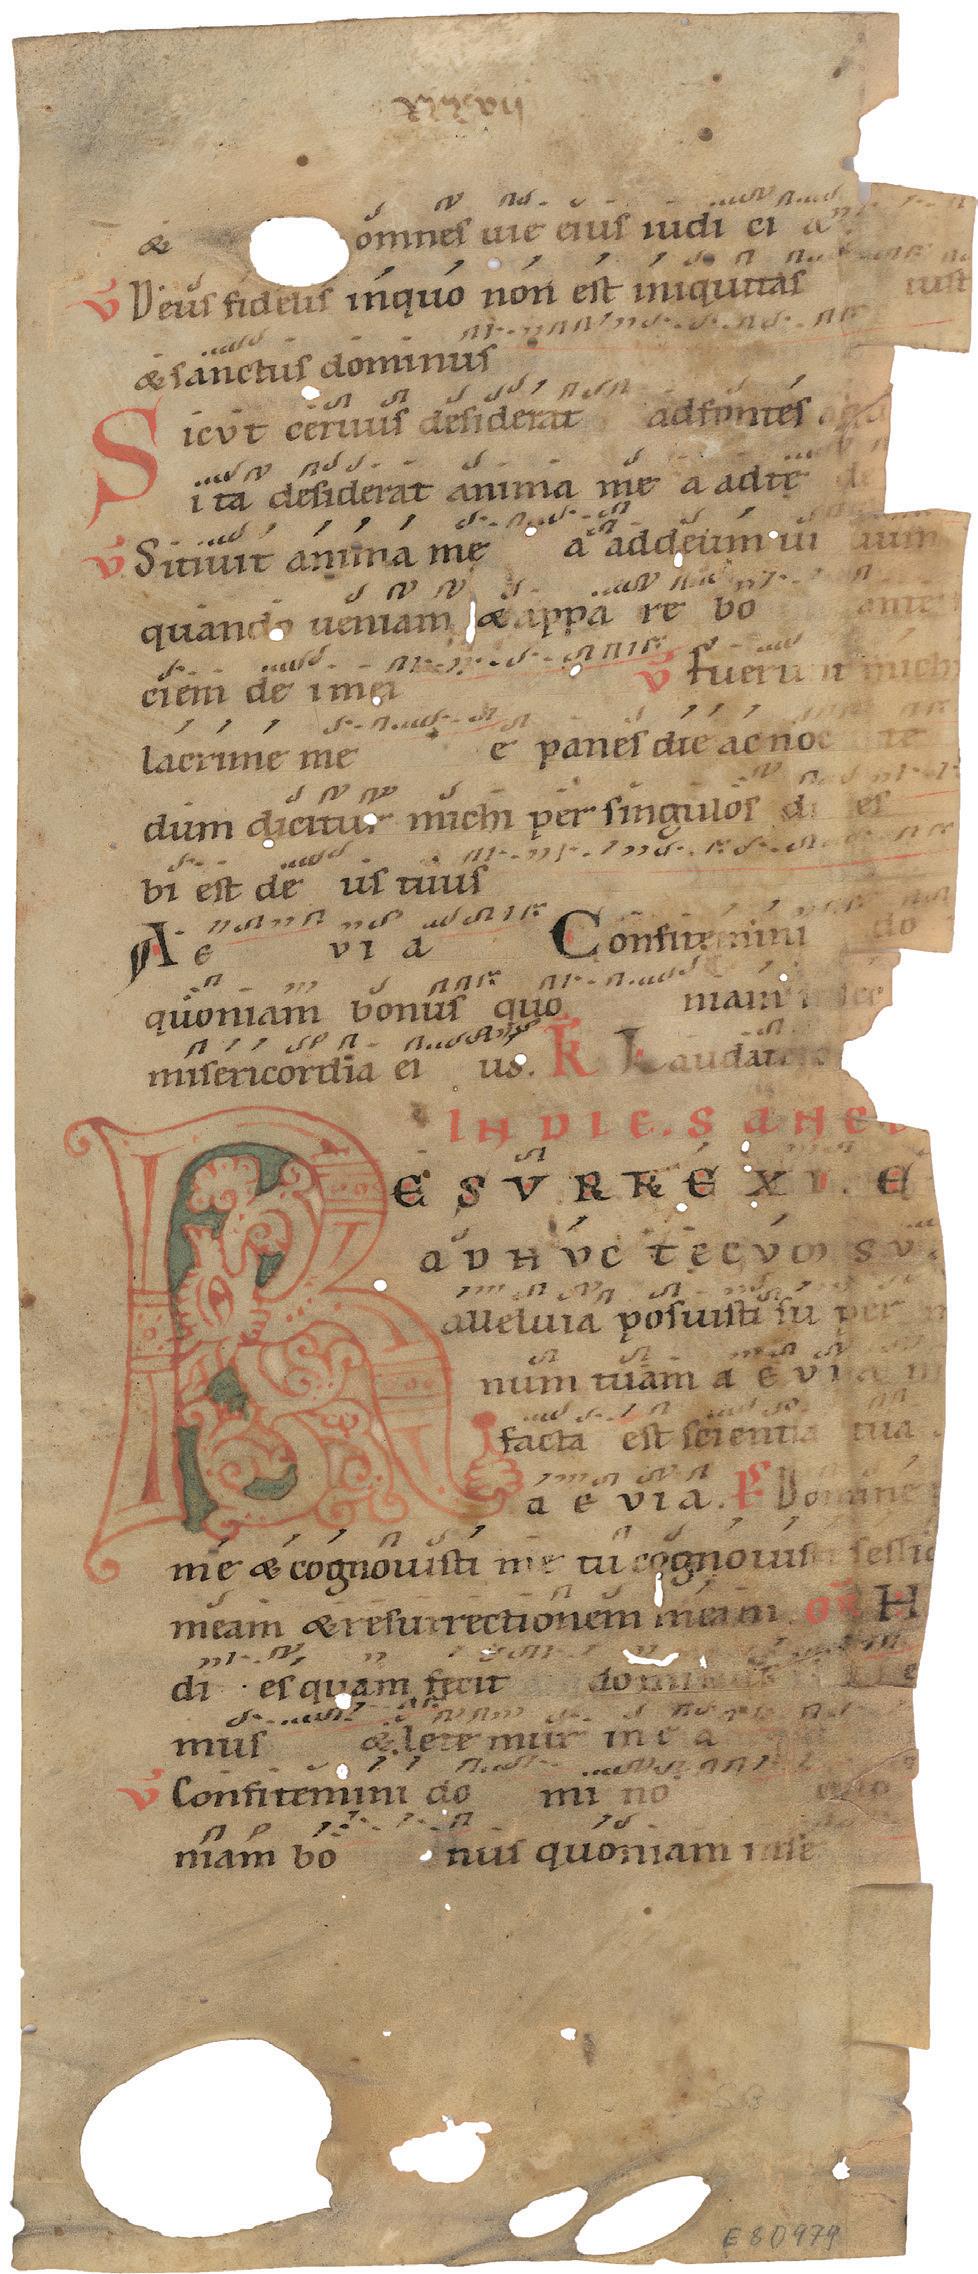 & omnes uie eius iudi ci a
v̄ Deus fidelis in quo non est iniquitas iust
& sanctus dominus
Sicvt ceruus desiderat ad fontes
ita desiderat anima me a ad te de
v̄ Sitiuit anima me a ad deum ui uum
quando ueniam & appa re bo ante
ciem de i mei v̄ fuerun michi
lacrime me e panes die ac noc te
dum dicitur michi per singulos di es
bi est de us tuus
A e v i a Confitemini do
quoniam bonus quo niam in sec
misericordia ei us. R̄ Laudate
IN DIE. SANC
RESVRREXI. E
ADHVC TECVM SV
alleluia posuisti su per m
num tuam a e v i a m
facta est scientia tua
a e v i a. P̄ Domine
me & cognouisti me tu cognouisti sessio
meam & resurrectionem meam. GR̄ H
di es quam fecit dominus e
mus & lete mur in e a
v̄ Confitemini do mi no
niam bo nus quoniam in se
E 80979